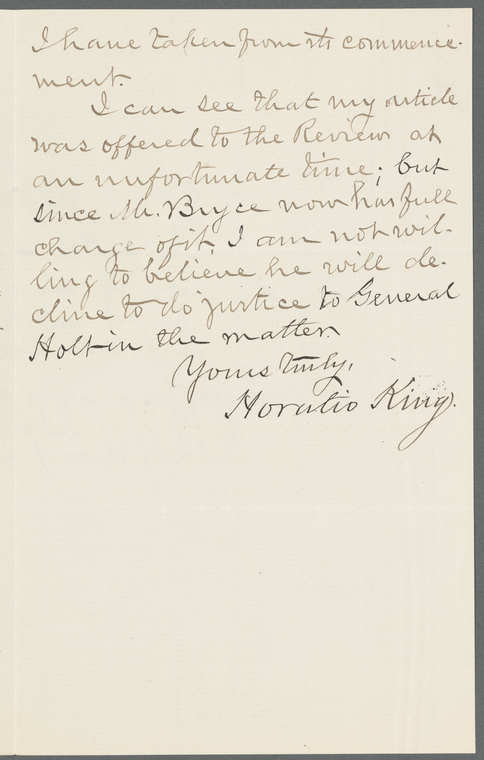 I have taken from its commence-
ment.
I can see that my article
was offered to the Review at
an unfortunate time; but
since Mr. Bryce now has full
charge of it, I am not wil-
ling to believe he will de-
cline to do justice to General
Holt in the matter.
Yours truly,
Horatio King.